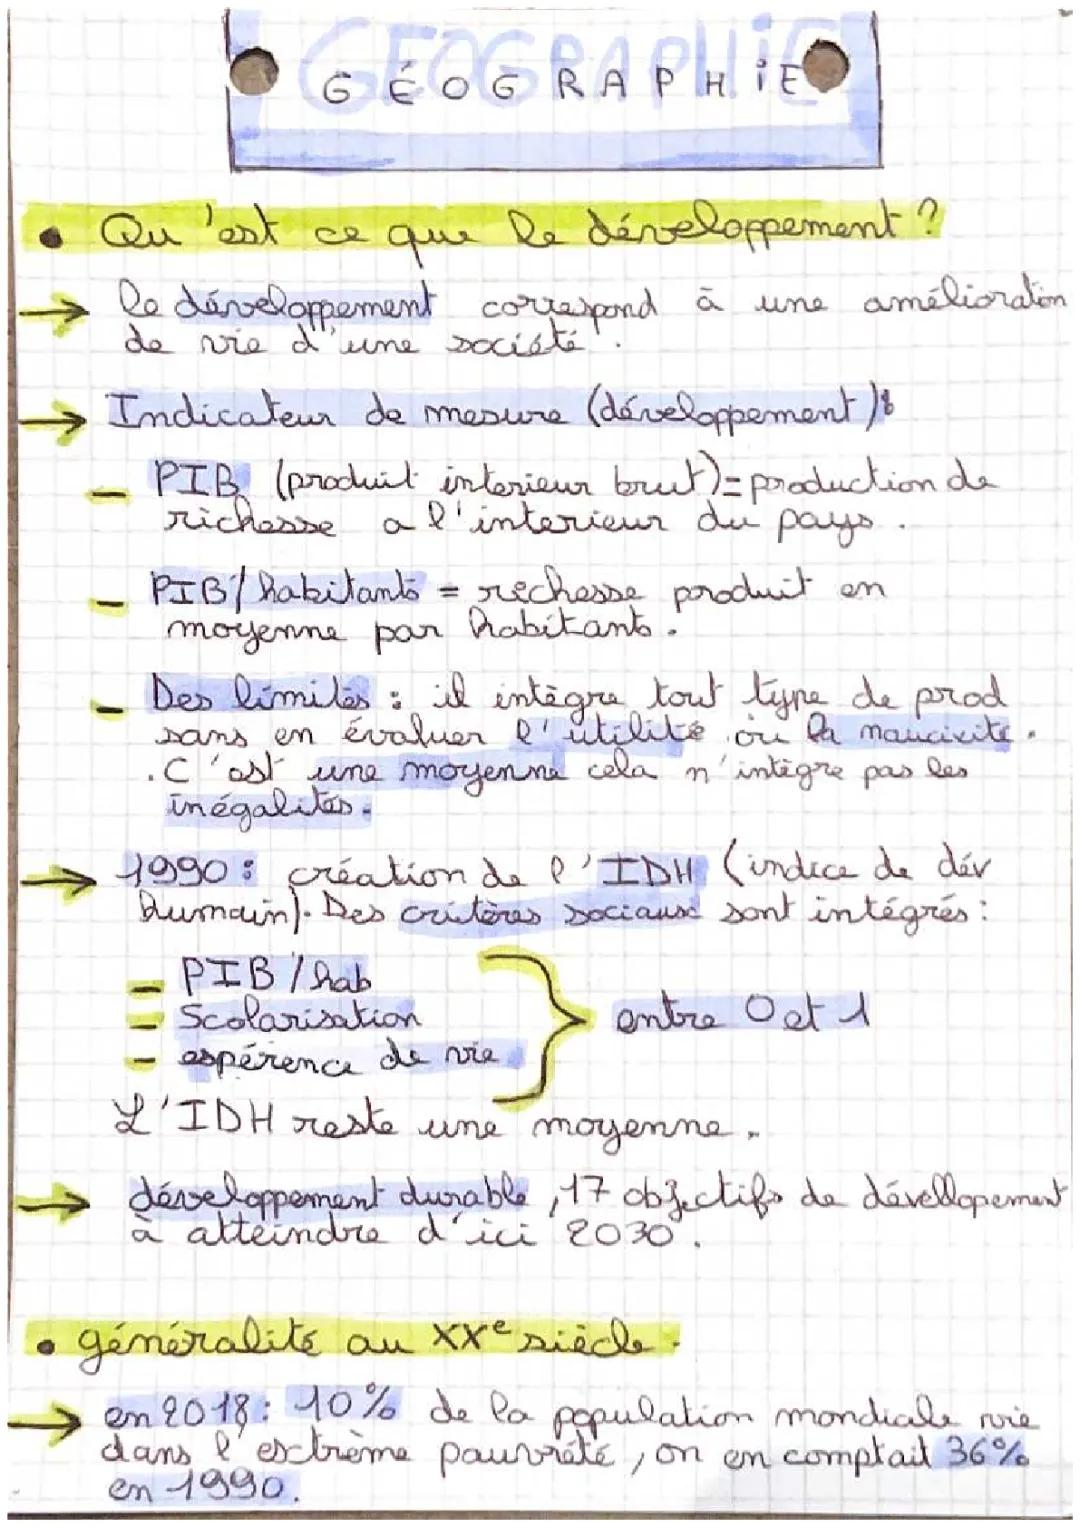 GÉOGRAPHiE
• Qu'est ce que le développement ?
→ le développement correspond à une amélioration
de vie d'une société.
→ Indicateur de mesure (développement):
- PIB (produit interieur brut)= production de
richesse a l'interieur du pays.
- PIB/habitants = richesse produit en
moyenne par habitants.
- Des limites : il intègre tout type de prod
sans en évaluer l'utilité ou la nocivité.
. C'est une moyenne cela n'intègre pas les
inégalités.
→ 1990 : création de l'IDH (indice de dév
humain). Des critères sociaux sont intégrés :
- PIB/hab
- Scolarisation
- espérence de vie
entre 0 et 1
L'IDH reste une moyenne.
→ développement durable, 17 objectifs de dévellopement
à atteindre d'ici 2030.
• généralité au XXe siècle.
→ en 2018 : 10% de la population mondiale vie
dans l'extrème pauvreté, on en comptait 36%
en 1990.